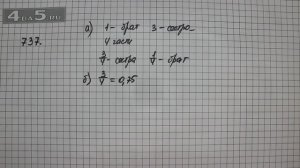 4 на 5.ru
737. а) 1 - брат 3 - сестра
4 части
3/4 - сестра 1/4 - брат
б) 3/4 = 0,75